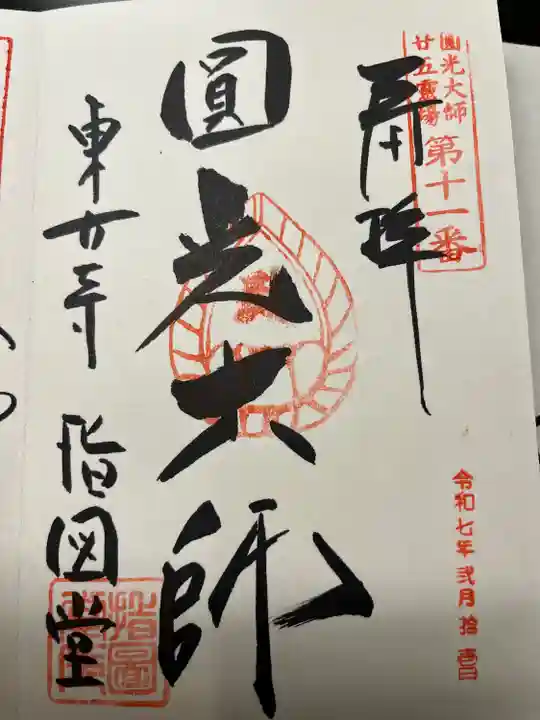 圓光大師
廿五霊場
第十一番
奉拝
圓光大師
東大寺 指図堂
令和七年弐月拾壱日
指図